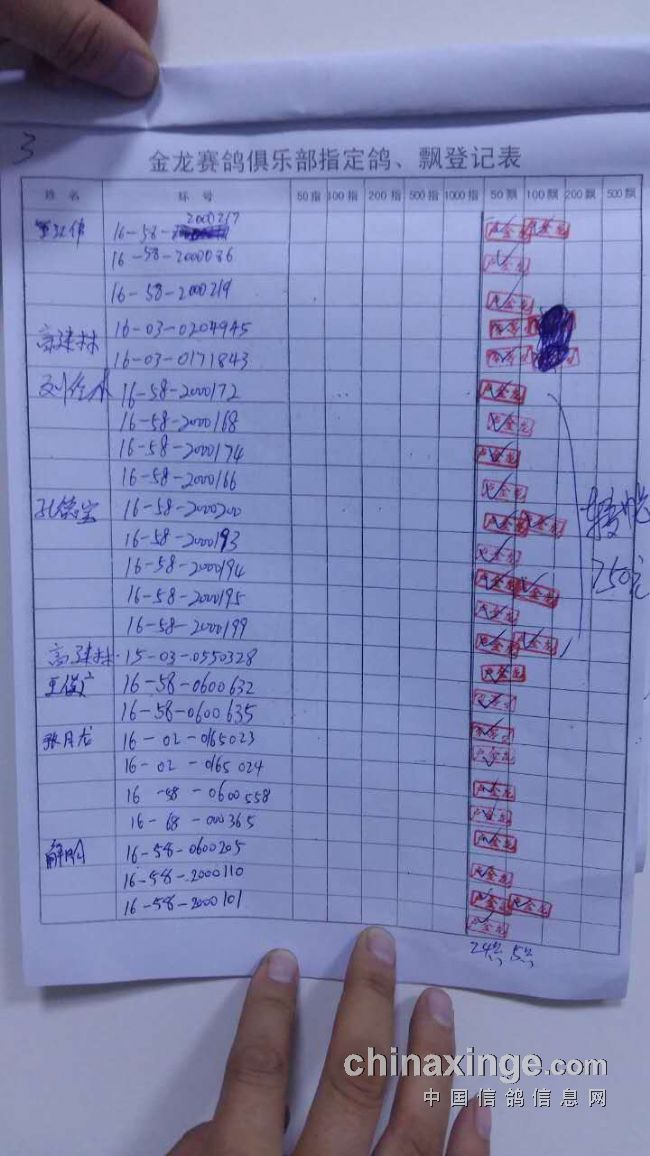 3
金龙赛鸽俱乐部指定鸽、飘登记表
姓 名 环 号 50指 100指 200指 500指 1000指 50飘 100飘 200飘 500飘
2000217
16-58-
16-58-2000036
16-58-2000219
高建林 16-03-0204945
16-03-0171843
16-58-2000172
16-58-2000168
16-58-2000174
16-58-2000166
孔德宝 16-58-2000200
16-58-2000193
16-58-2000194
16-58-2000195
16-58-2000199
高建林 15-03-0550328
16-58-0600632
16-58-0600635
张月龙 16-02-0165023
16-02-0165024
16-58-0600558
16-68-000365
16-58-0600205
16-58-2000110
16-58-2000101
750元
24 5
chinaxinge.com
中国信鸽信息网